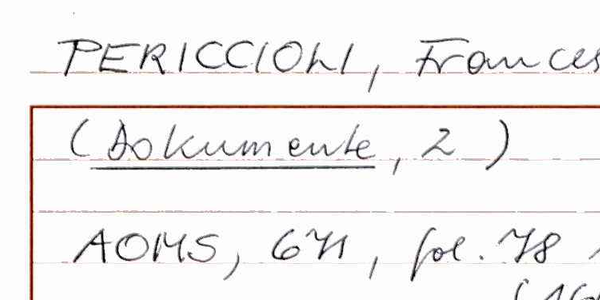 PERICCIOLI, Frances
(Dokumente, 2)
AOMS, 671, fol. 78